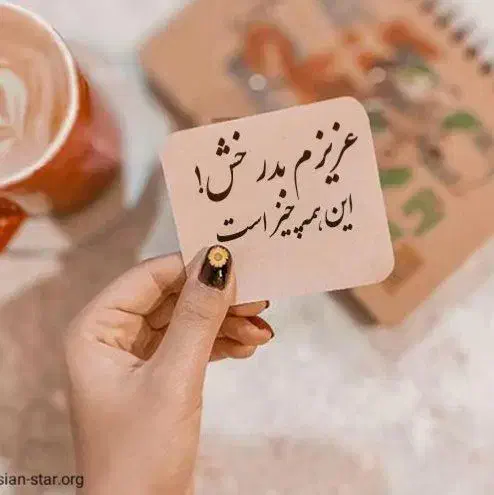 عزیزم بدرخش!
این همه چیز است
sian-star.org